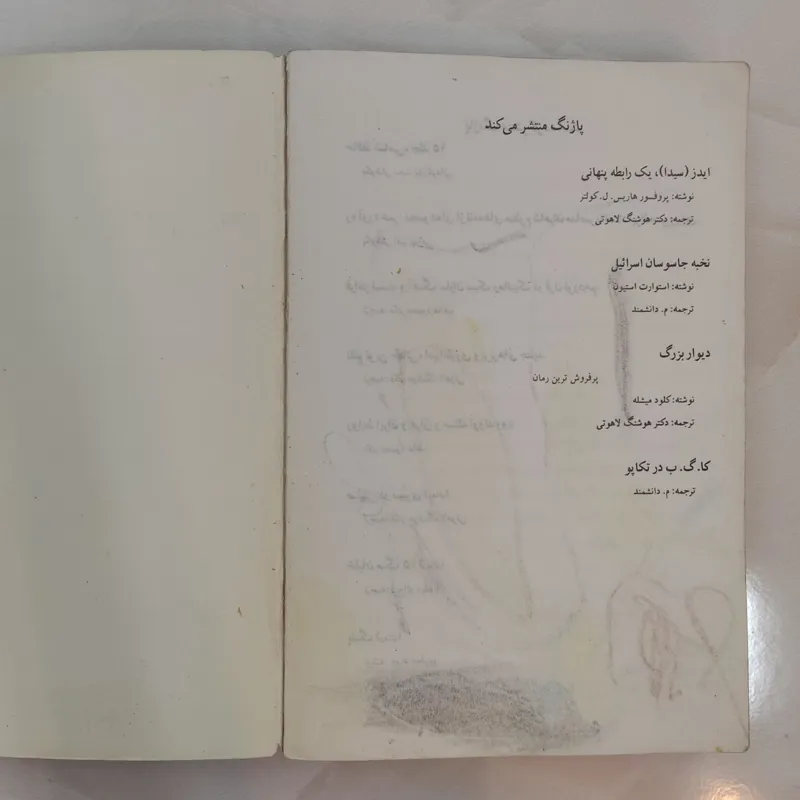 پاژنگ منتشر می‌کند
ایدز (سیدا)، یک رابطه پنهانی
نوشته: پروفسور هاریس. ل. کولتر
ترجمه: دکتر هوشنگ لاهوتی
نخبه جاسوسان اسرائیل
نوشته: استوارت استیون
ترجمه: م. دانشمند
دیوار بزرگ
پرفروش ترین رمان
نوشته: کلود میشله
ترجمه: دکتر هوشنگ لاهوتی
کا. گ. ب در تکاپو
ترجمه: م. دانشمند